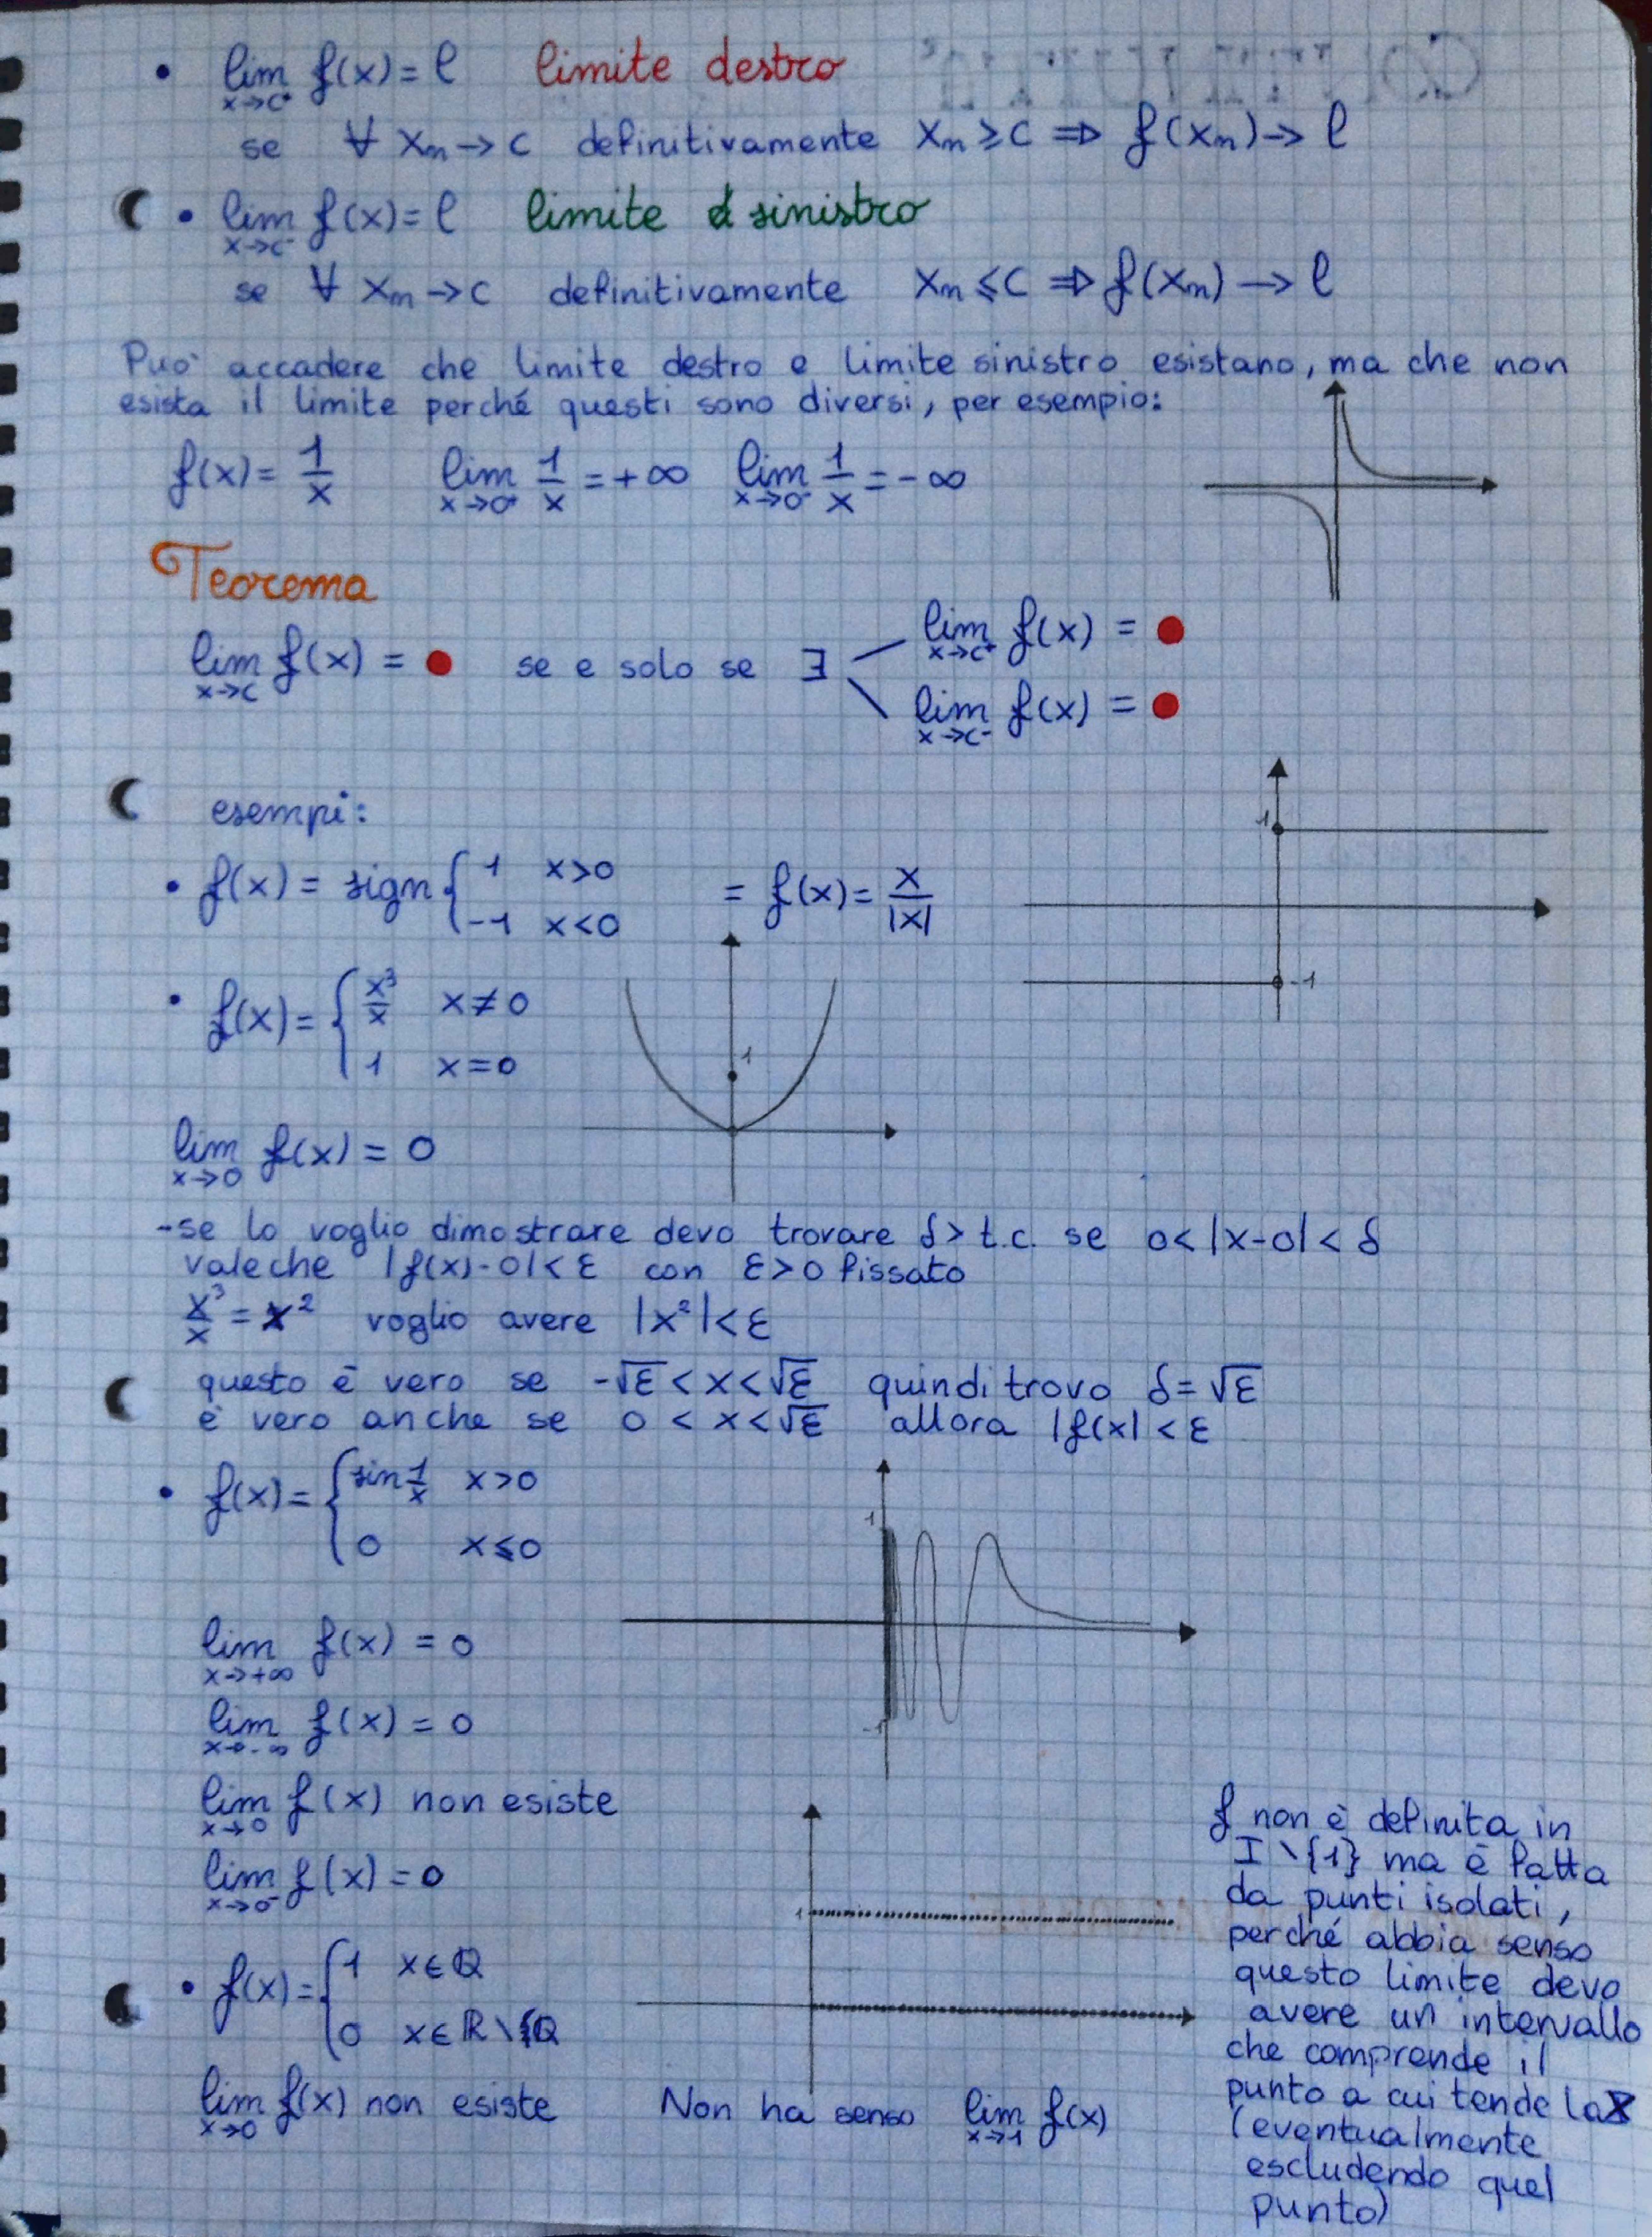 • lim x→c⁺ f(x) = l limite destro
se ∀ xₙ → c definitivamente xₙ ≥ c ⇒ f(xₙ) → l
• lim x→c⁻ f(x) = l limite sinistro
se ∀ xₙ → c definitivamente xₙ ≤ c ⇒ f(xₙ) → l
Può accadere che limite destro e limite sinistro esistano, ma che non
esista il limite perché questi sono diversi, per esempio:
f(x) = 1/x lim x→0⁺ 1/x = +∞ lim x→0⁻ 1/x = -∞
Teorema
lim x→c⁺ f(x) = ●
lim x→c f(x) = ● se e solo se ∃
lim x→c⁻ f(x) = ●
esempi:
1
• f(x) = sign { 1 x>0
-1 x<0 = f(x) = x/|x|
-1
• f(x) = { x³/x x≠0
1 x=0
1
lim x→0 f(x) = 0
-se lo voglio dimostrare devo trovare δ> t.c. se 0<|x-0|<δ
vale che |f(x)-0|<ε con ε>0 fissato
x³/x = x² voglio avere |x²|<ε
questo è vero se -√ε < x < √ε quindi trovo δ = √ε
è vero anche se 0 < x < √ε allora |f(x| < ε
• f(x) = { sin 1/x x>0
0 x≤0
1
-1
lim x→+∞ f(x) = 0
lim x→-∞ f(x) = 0
lim x→0 f(x) non esiste
lim x→0⁻ f(x) = 0
• f(x) = { 1 x∈ℚ
0 x∈ℝ\ℚ
1
lim x→0 f(x) non esiste Non ha senso lim x→1 f(x)
f non è definita in
I\{1} ma è fatta
da punti isolati,
perché abbia senso
questo limite devo
avere un intervallo
che comprende il
punto a cui tende la x
(eventualmente
escludendo quel
punto)